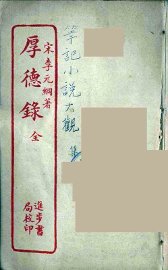 宋李元綱著
厚德錄 全
進步書局校印
筆記小說大觀